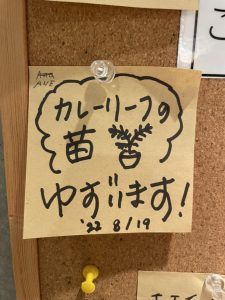 カレーリーフの
苗
ゆずります!
'22 8/19